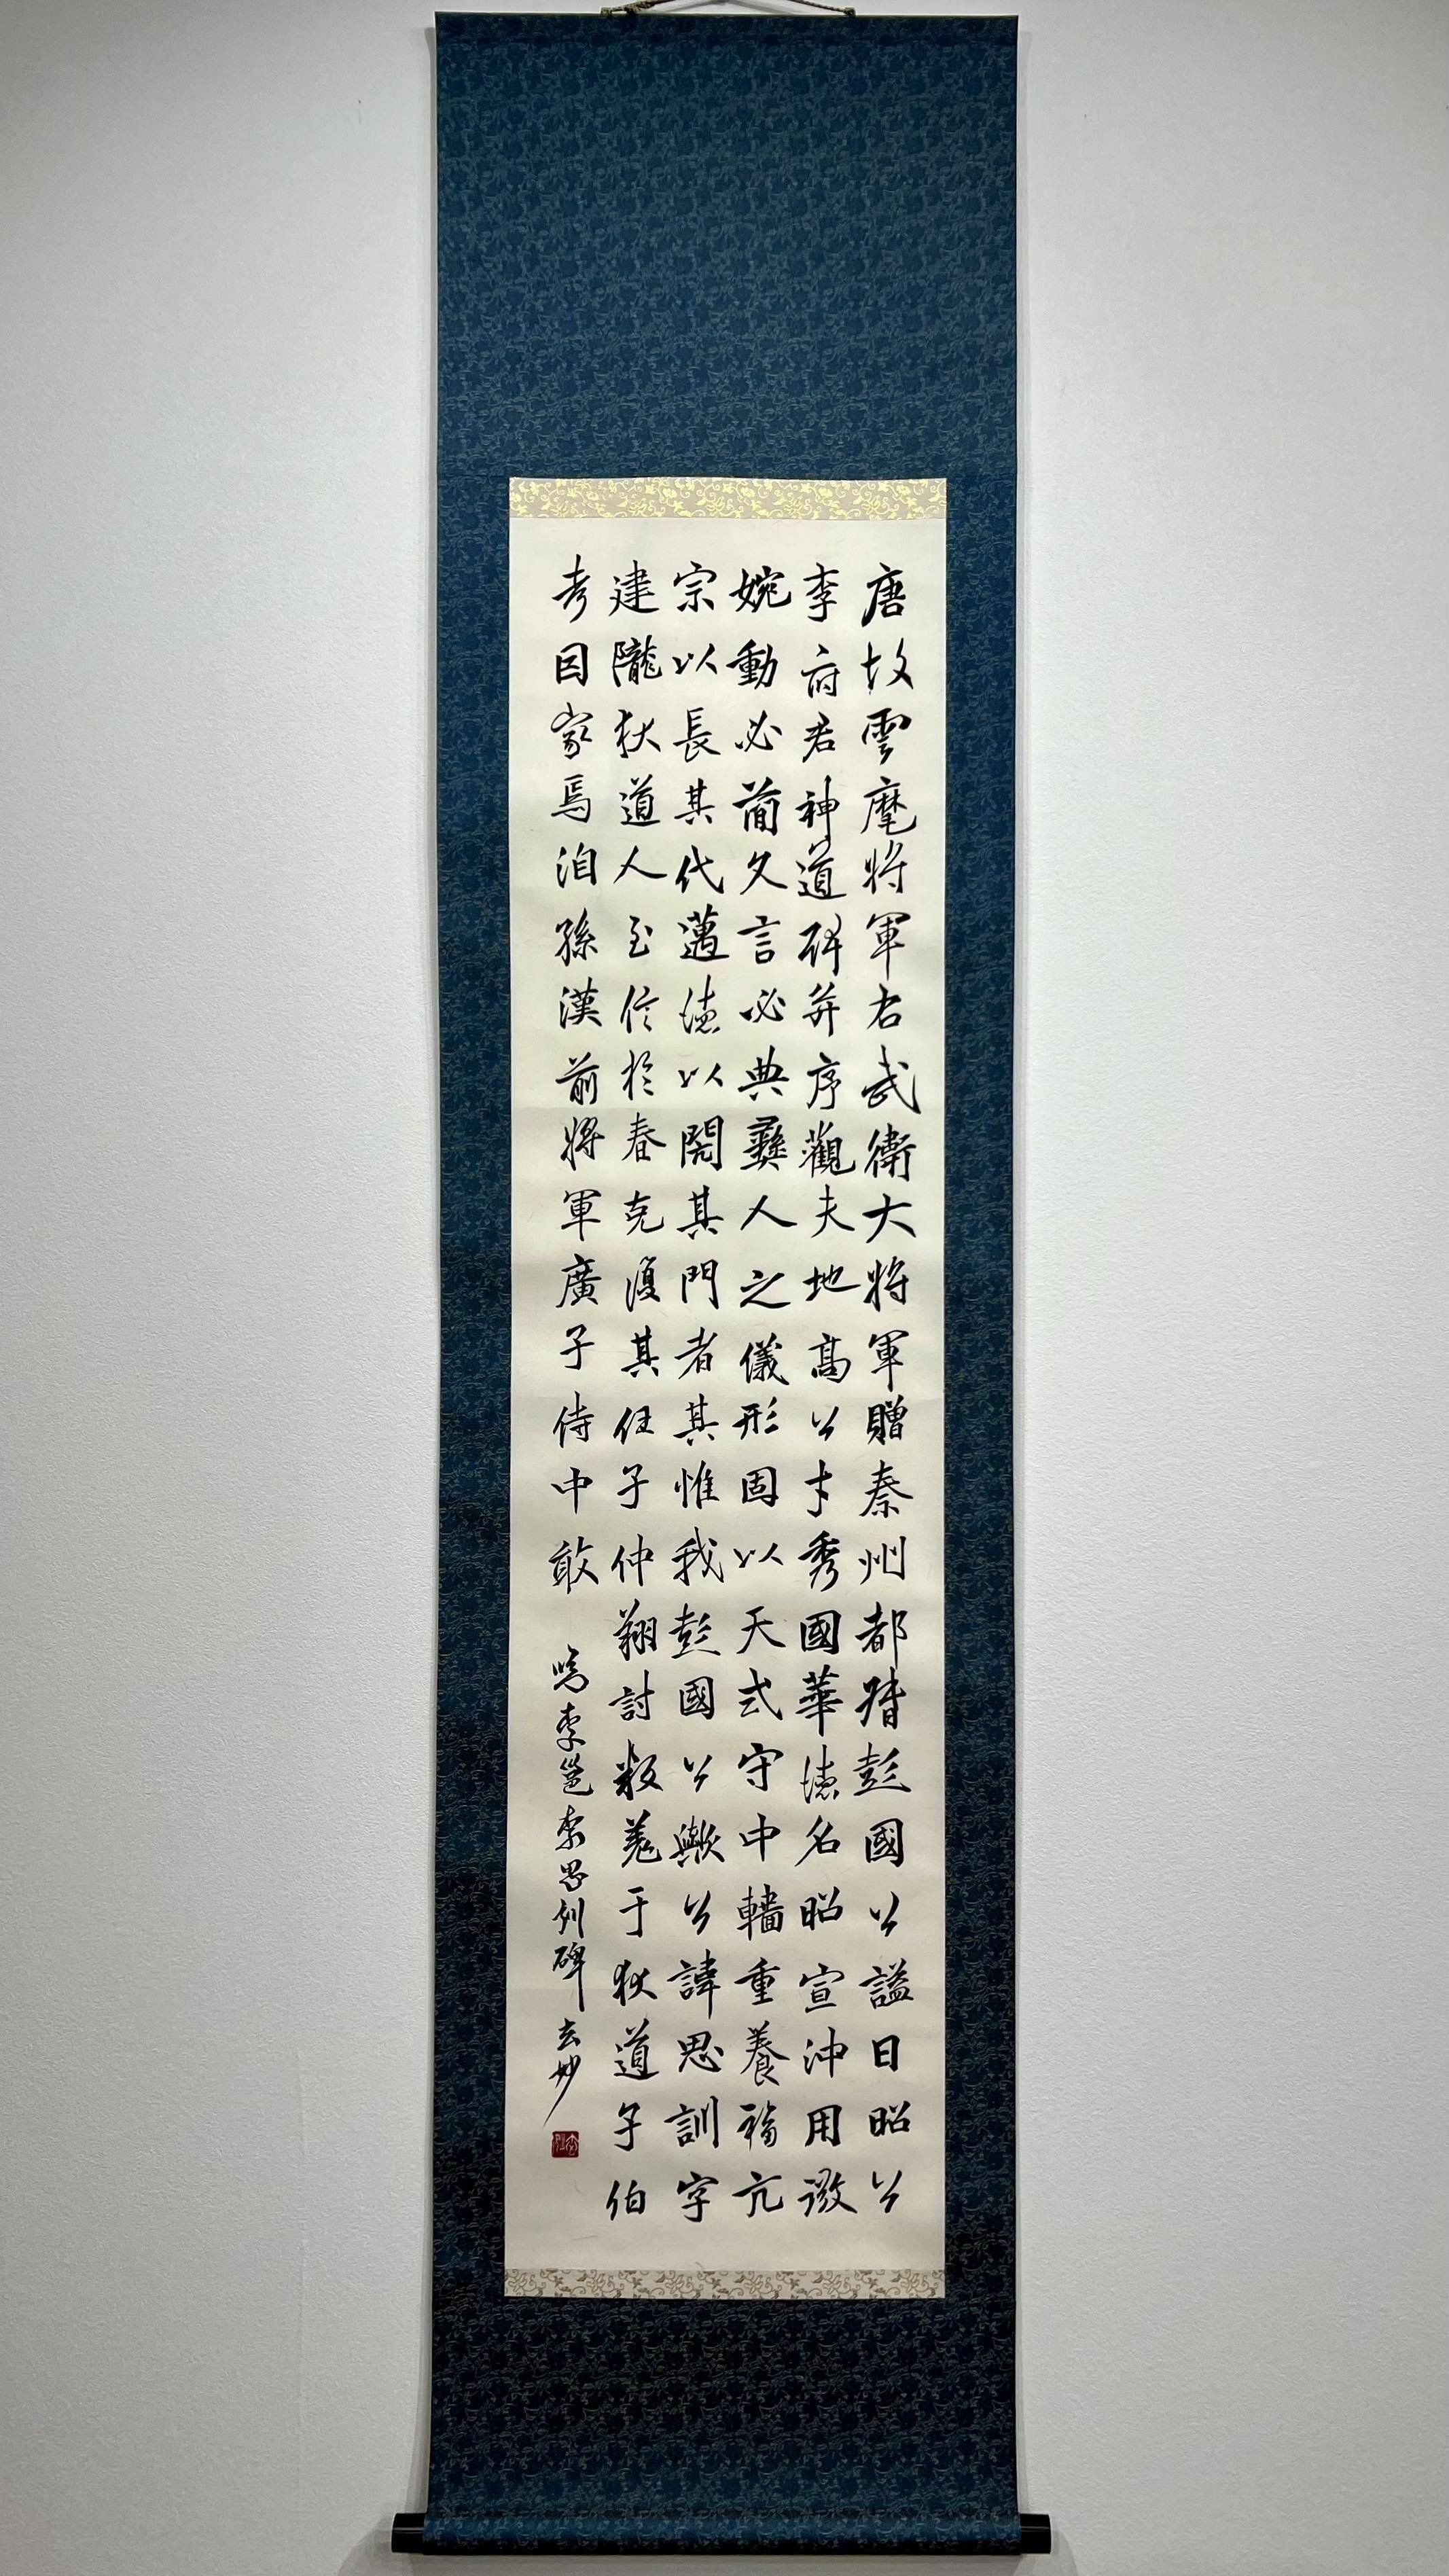 唐故雲麾將軍右武衛大將軍贈秦州都督彭國公謚曰昭公
李府君神道碑并序觀夫地高公才秀國華德名昭宣沖用微
婉動必簡久言必典彝人之儀形固以天式守中轖重養福亢
宗以長其代邁德以閎其門者其惟我彭國公歟公諱思訓字
建隴狄道人至信於春克復其任子仲翔討叛羌于狄道子伯
考因家焉洎孫漢前將軍廣子侍中敢
臨李邕李思訓碑 玄妙